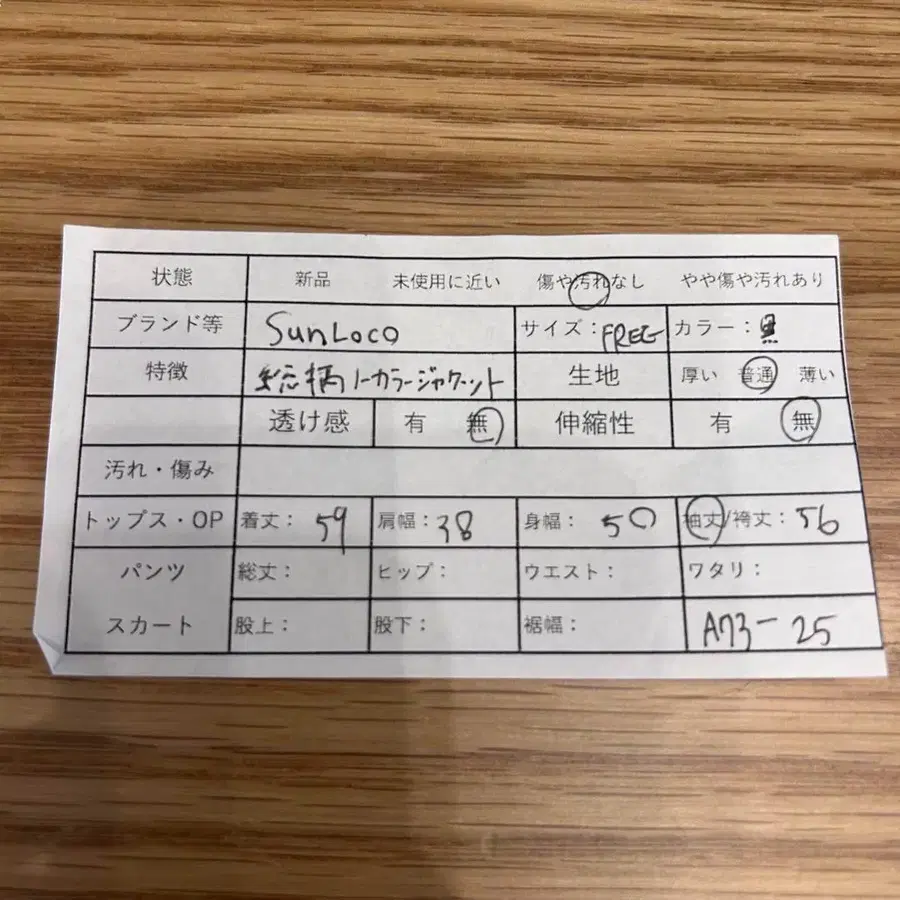 状態 新品 未使用に近い 傷や汚れなし やや傷や汚れあり
ブランド等 SunLoco サイズ：FREE カラー：黒
特徴 総柄ノーカラージャケット 生地 厚い 普通 薄い
透け感 有 無 伸縮性 有 無
汚れ・傷み
トップス・OP 着丈：59 肩幅：38 身幅：50 袖丈/袴丈：56
パンツ 総丈： ヒップ： ウエスト： ワタリ：
スカート 股上： 股下： 裾幅： A73-25